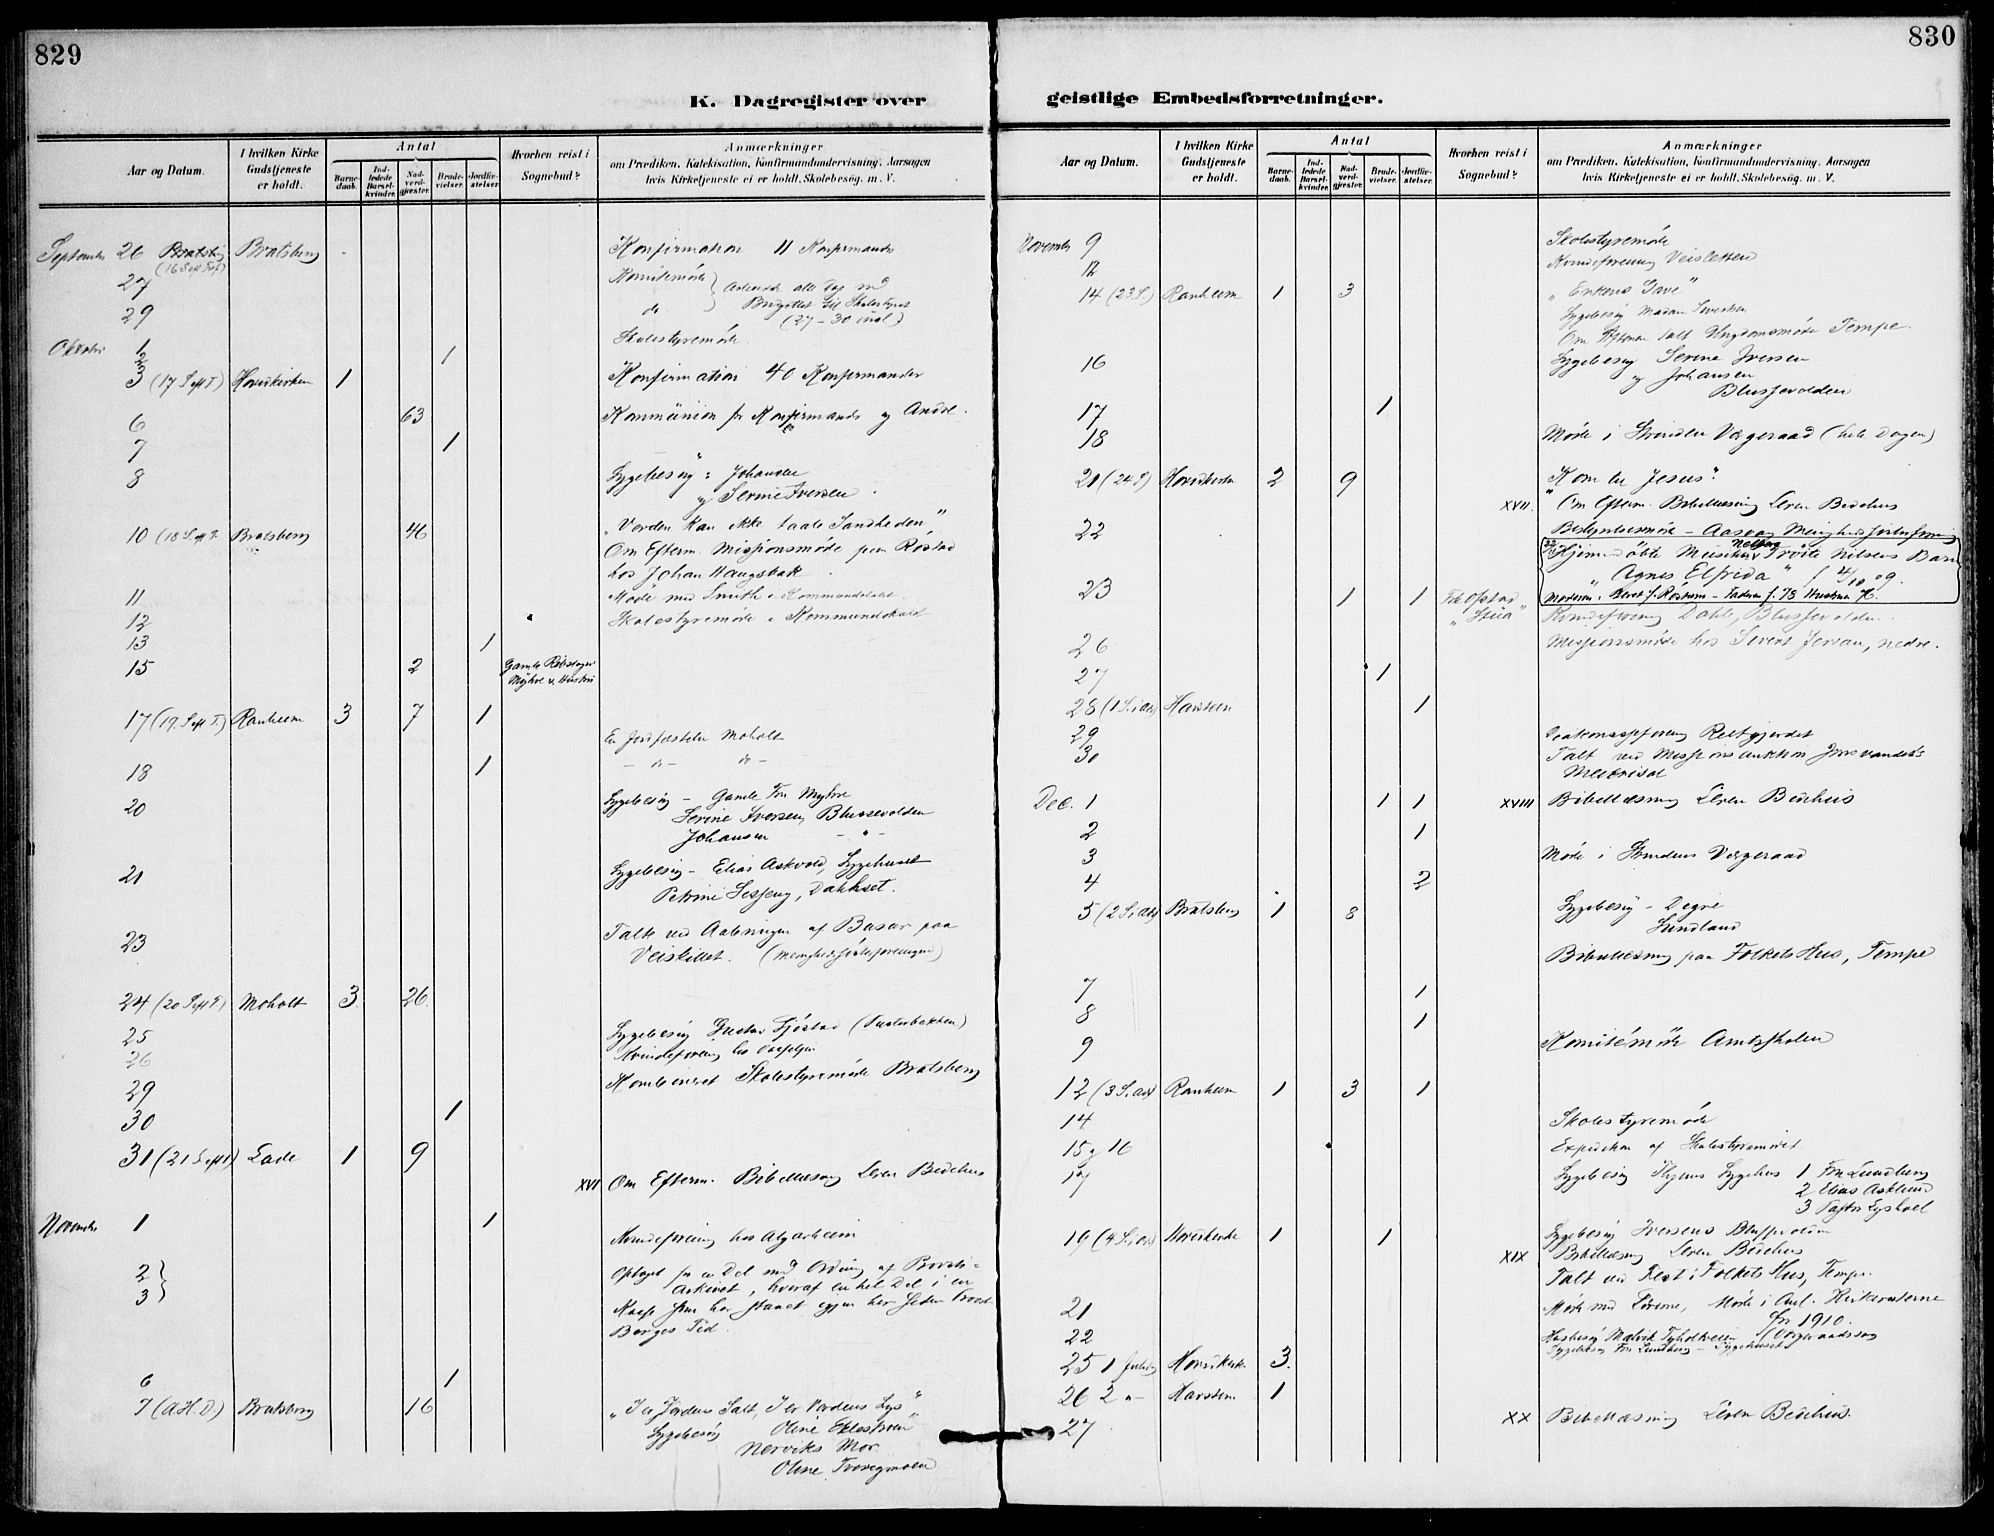 829
K. Dagregister over
Aar og Datum.
I hvilken Kirke Gudstjeneste er holdt.
Antal
Barne-daab.
Ind-ledede Barsel-kvinder.
Nad-verd-gjester.
Brude-vielser.
Jordfæ-stelser.
Hvorhen reist i Sognebud?
Anmærkninger
om Prædiken, Katekisation, Konfirmandundervisning, Aarsagen
hvis Kirketjeneste ei er holdt, Skolebesøg, m. V.
September 26 Bratsberg Konfirmation 11 Konfirmander
(16 S. eft Tref)
27 Komitémøde
29 do. (27-30 incl)
Skolestyremøde
Oktober 1 1
2
3 (17 S. eft T.) Hovedkirken 1 Konfirmation 40 Konfirmander
6 63 Kommunion for Konfirmander og Andre.
7 1
8 Sygebesøg: Johansen
og Serine Iversen.
10 (18 S. eft T. Bratsberg 46 "Verden kan ikke taale Sandheden"
Om Efterm. Missionsmøde paa Rostad
hos Johan Haugsbak.
11 Møde med Smith i Kommunelokalet
12 Skolestyremøde i Kommunelokalet
13 1
15 2 Gamle
Myhre
17 (19. S. eft T.) Ranheim 3 7 1
En Jordfæstelse Moholt
18 1 – do – do –
20 Sygebesøg – Gamle Fru Myhre
Serine Iversen, Blussevolden
Johansen – " –
21 Sygebesøg – Elias Askvold, Sygehuset
Petrine Sesseng, Dalhset.
23 Talte ved Aabningen af Basar paa
Veiskillet. (Menighedspleieforeningen)
24 (20 S. eft T) Moholt 3 26
25 Sygebesøg Gustav Sjøstad
26 Kvindeforening hos
29 Kombineret Skolestyremøde Bratsberg
30 1
31 (21 S. eft T) Lade 1 9
XVI Om Efterm. Bibellæsning Leren Bedehus
November 1 1 Kvindeforening hos Algarheim
2 Optaget for en Del med Ordning af Præste-
3 Arkivet, hvoraf en hel Del i en
Kasse som har staaet igjen her siden Provst
Borges Tid.
6 1
7 (A.H.D.) Bratsberg 16 "I er Jordens Salt, I er Verdens Lys"
Sygebesøg Oline Eklestrøm
Nerviks Mor.
Oline
830
geistlige Embedsforretninger.
Aar og Datum.
I hvilken Kirke Gudstjeneste er holdt.
Antal
Barne-daab.
Ind-ledede Barsel-kvinder.
Nad-verd-gjester.
Brude-vielser.
Jordfæ-stelser.
Hvorhen reist i Sognebud?
Anmærkninger
om Prædiken, Katekisation, Konfirmandundervisning, Aarsagen
hvis Kirketjeneste ei er holdt, Skolebesøg, m. V.
November 9 Skolestyremøde
12 Kvindeforening Veisletten
14 (23 S.) Ranheim 1 3 "Enkens Gave"
Sygebesøg Madam
Om Aftenen talt Ungdomsmøde Tempe.
16 Sygebesøg Serine Iversen
og Johansen
Blussevolden
17 1
18 Møde i Strinden Vergeraad (hele Dagen)
21 (24 S) Hovedkirken 2 9 "Kom til Jesus".
XVII Om Efterm. Bibellæsning Leren Bedehus
22 Bestyrelsesmøde – Aasvang Menighedspleieforening
22/11 Hjemmedøbte Musiker Nelsons Barn
"Agnes Elfrida" f. 4/10 09.
23 1 1
"Stua" Kvindeforening Dahl, Blussevolden.
26 Missionsmøde hos Jervan, nedre.
27 1
28 (1 S. i adv) Havstein 1
29 Reitgjerdet
30 Talt ved Missionsauktion Jonsvandets
Meierisal
Dec. 1 1 1 XVIII Bibellæsning Leren Bedehus
2 1
3 Møde i Strindens Vergeraad
4 2
5 (2 S. i adv) Bratsberg 1 8 Sygebesøg – Degre
Sundland
Bibellæsning paa Folkets Hus, Tempe
7 1
8 1
9 Komitémøde Amtsskolen
12 (3 S. adv) Ranheim 1 3 1
14 Skolestyremøde
15 og 16 Expedition af Skolestyremødet
17 Sygebesøg Sygehus 1 Fru Lundberg
2 Elias Asklund
3 Pastor Lysholt
19 (4 S. adv) Hovedkirke 1 1 Sygebesøg Iversens Blussevolden
XIX Bibellæsning Leren Bedehus
Talt ved Fest i Folkets Hus, Tempe.
21 Møde med Lærerne, Møde i Anl.
for 1910.
22 Husbesøg
Sygebesøg Fru Lundberg – Sygehuset
25 1 Juledag Hovedkirke 3.
26 2 "– Havstein 1
27 XX Bibellæsning Leren Bedehus.